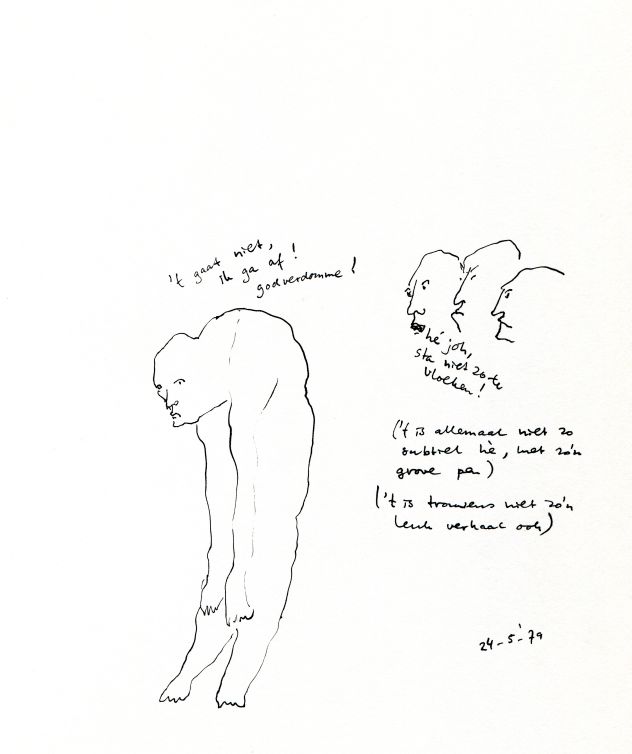 't gaat niet,
ik ga af!
godverdomme!
hé joh,
sta niet zo te
vloeken!
('t is allemaal niet zo
subtiel hè, met zo'n
grove pen)
('t is trouwens niet zo'n
leuk verhaal ook)
24-5-'79